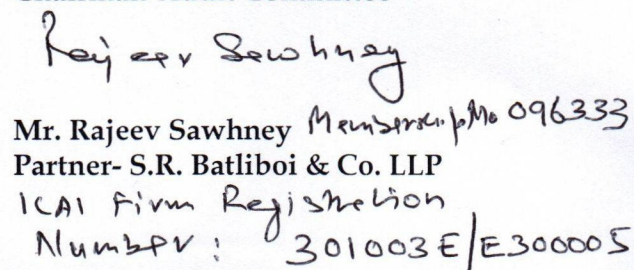 Rajeev Sawhney
Mr. Rajeev Sawhney Membership No 096333
Partner- S.R. Batliboi & Co. LLP
ICAI Firm Registration
Number: 301003E/E300005